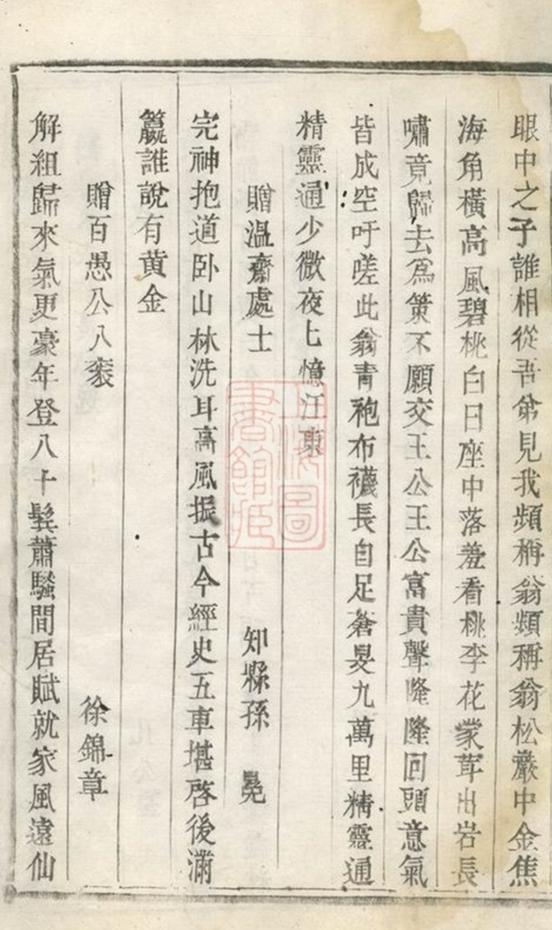 眼中之子誰相從吾弟見我頻稱翁頻稱翁松巖中金焦
海角橫高風碧桃白日座中落羞看桃李花蒙茸出岩長
嘯竟歸去為策不願交王公王公富貴聲隆隆回頭意氣
皆成空吁嗟此翁青袍布襪長自足蒼旻九萬里精靈通
精靈通少微夜上憶江東
贈溫齋處士 知縣孫 冕
完神抱道卧山林洗耳高風振古今經史五車堪啓後滿
籯誰說有黃金
贈百愚公八袠 徐錦章
解組歸來氣更豪年登八十鬂蕭騷間居賦就家風遠仙
上海圖
書館藏